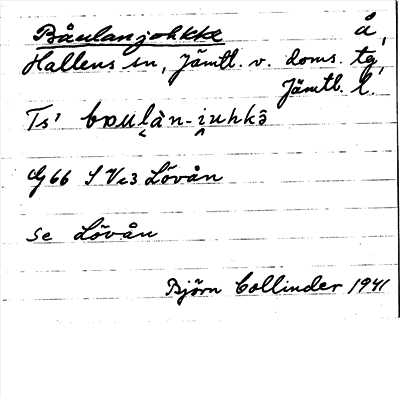 Båulanjohkke å,
Hallens sn, Jämtl. v. doms. tg,
Jämtl. l.
Ts' bɒulàn-iuhkə̑
G66 S Vc3 Lövån
se Lövån
Björn Collinder 1941